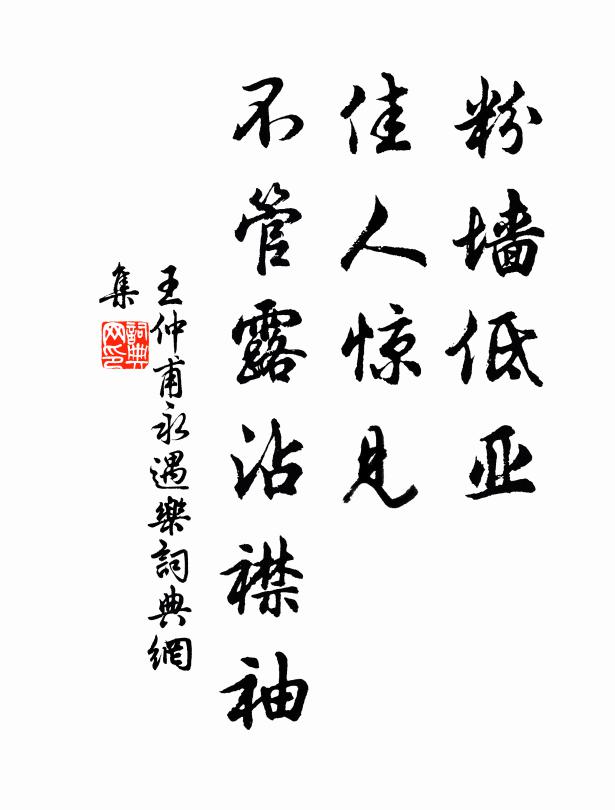 粉墙低亚
佳人惊见
不管露沾襟袖
王仲甫永遇樂詞典網
集
詞典
网印